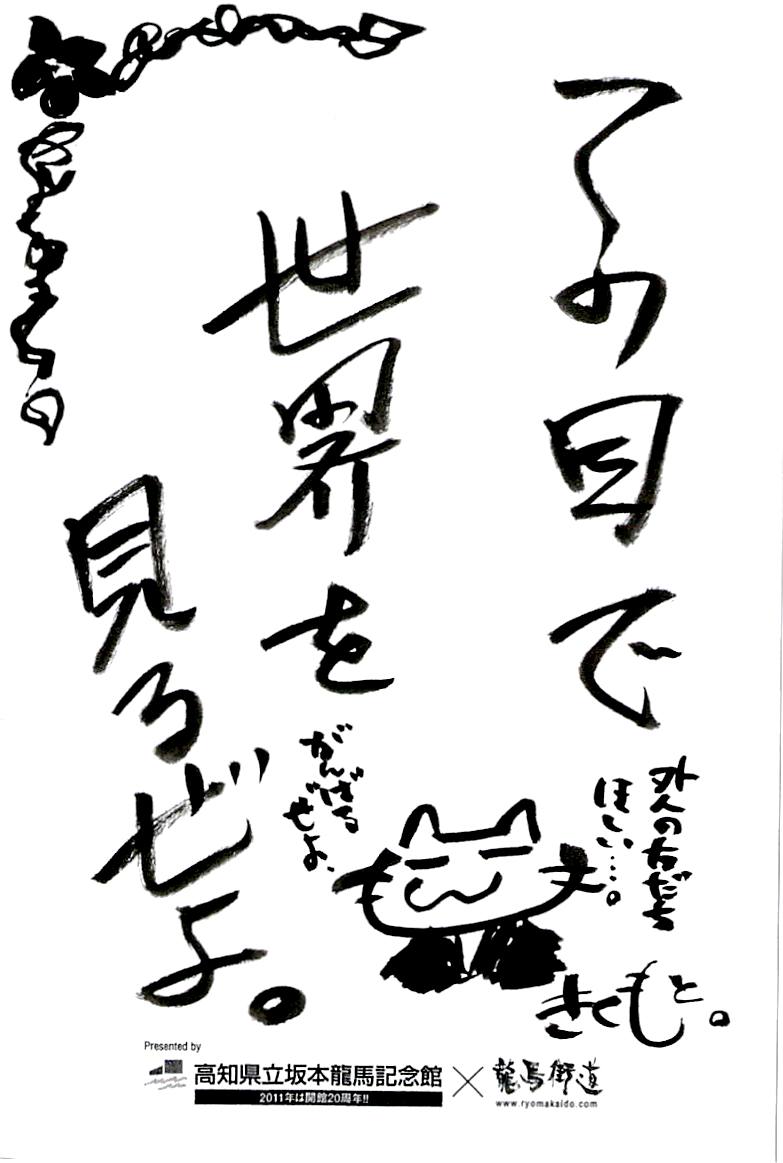 この目で
世界を
見るぜよ。
外人の友だち
ほしい…。
がんばる
ぜよ、
きくもと。
Presented by
高知県立坂本龍馬記念館
2011年は開館20周年!!
×
龍馬街道
www.ryomakaido.com